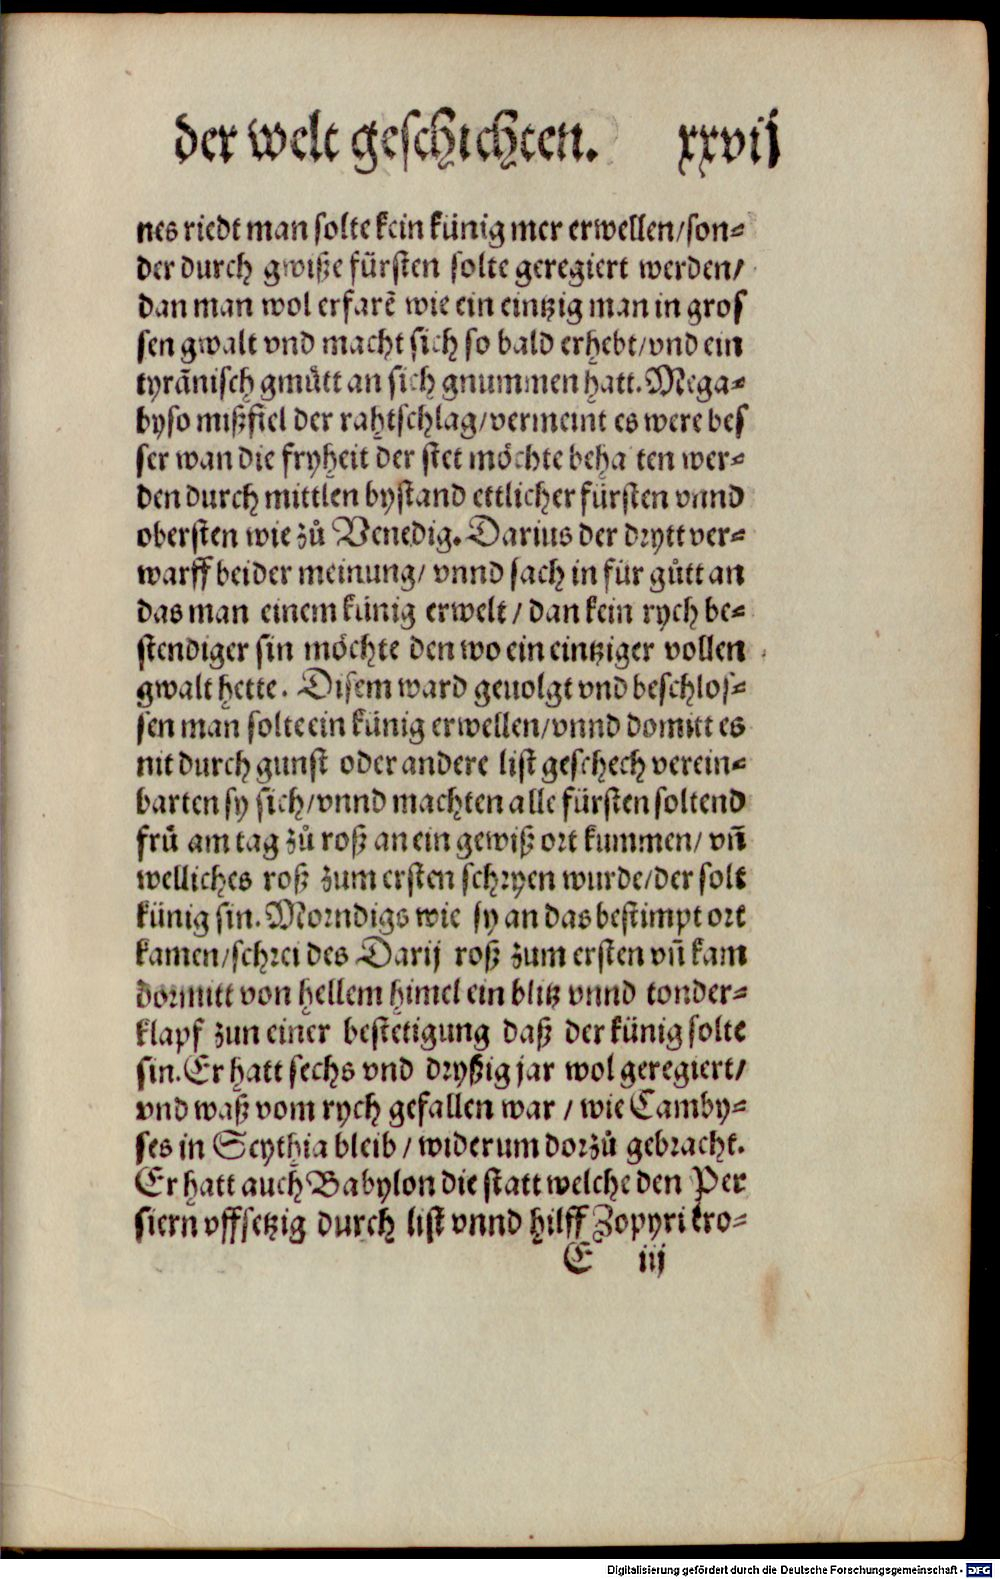 der welt geschichten. xxvij
nes riedt man solte kein künig mer erwellen/son⸗
der durch gwiße fürsten solte geregiert werden/
dan man wol erfarẽ wie ein eintzig man in gros
sen gwalt vnd macht sich so bald erhebt/vnd ein
tyrãnisch gmuͤtt an sich gnummen hatt. Mega⸗
byso mißfiel der rahtschlag/vermeint es were bes
ser wan die fryheit der stet möchte beha ten wer⸗
den durch mittlen bystand ettlicher fürsten vnnd
obersten wie zuͦ Venedig. Darius der drytt ver⸗
warff beider meinung/ vnnd sach in für guͦtt an
das man einem künig erwelt / dan kein rych be⸗
stendiger sin möchte den wo ein eintziger vollen
gwalt hette. Disem ward geuolgt vnd beschlos⸗
sen man solte ein künig erwellen/vnnd domitt es
nit durch gunst oder andere list geschech verein⸗
barten sy sich/vnnd machten alle fürsten soltend
fruͤ am tag zuͦ roß an ein gewiß ort kummen/ vñ
welliches roß zum ersten schryen wurde/der solt
künig sin. Morndigs wie sy an das bestimpt ort
kamen/schrei des Darij roß zum ersten vñ kam
dormitt von hellem himel ein blitz vnnd tonder⸗
klapf zun einer bestetigung daß der künig solte
sin. Er hatt sechs vnd dryßig jar wol geregiert/
vnd waß vom rych gefallen war / wie Camby⸗
ses in Scythia bleib / widerum dorzuͦ gebracht.
Er hatt auch Babylon die statt welche den Per
siern vffsetzig durch list vnnd hilff Zopyri ero⸗
E iij
Digitalisierung gefördert durch die Deutsche Forschungsgemeinschaft - DFG